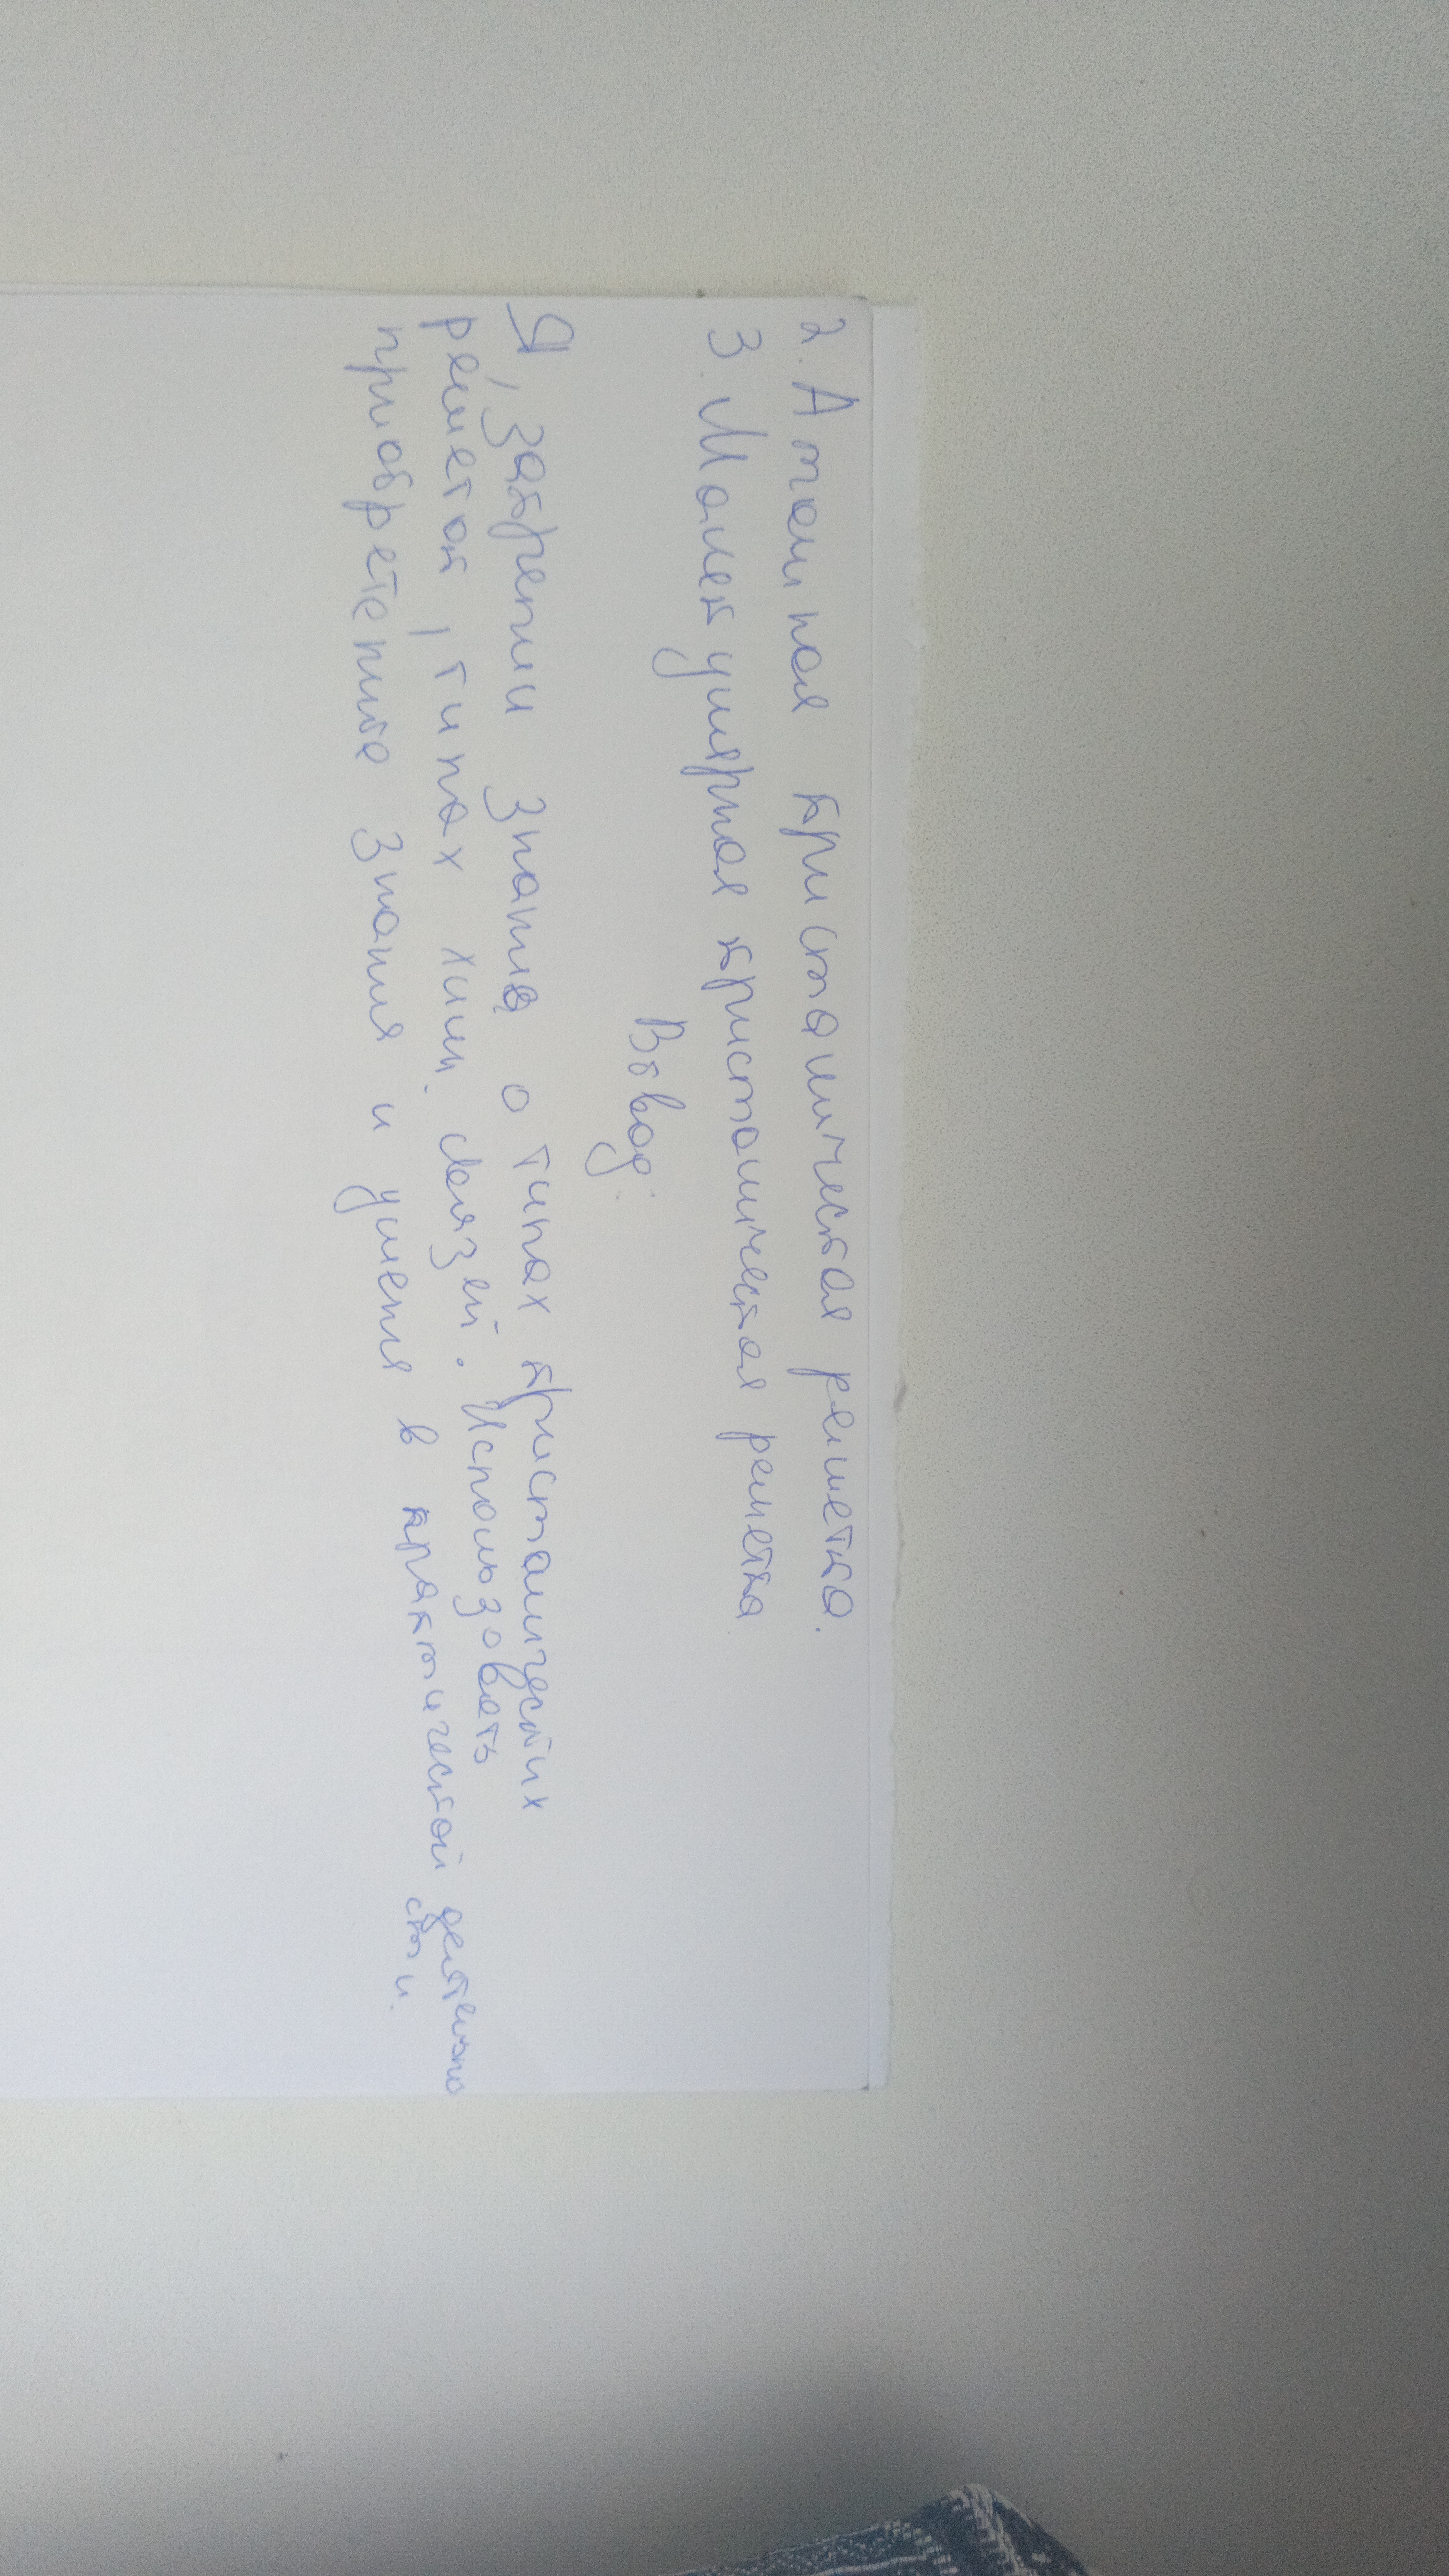 2. Атомная кристалическая решетка.
3. Молекулярная кристалическая решетка.
Вывод:
Я, закрепил знания о типах кристалических
решеток, типах хим. связей. Использовать
приобретеные знания и умения в практической деятельно
сти.